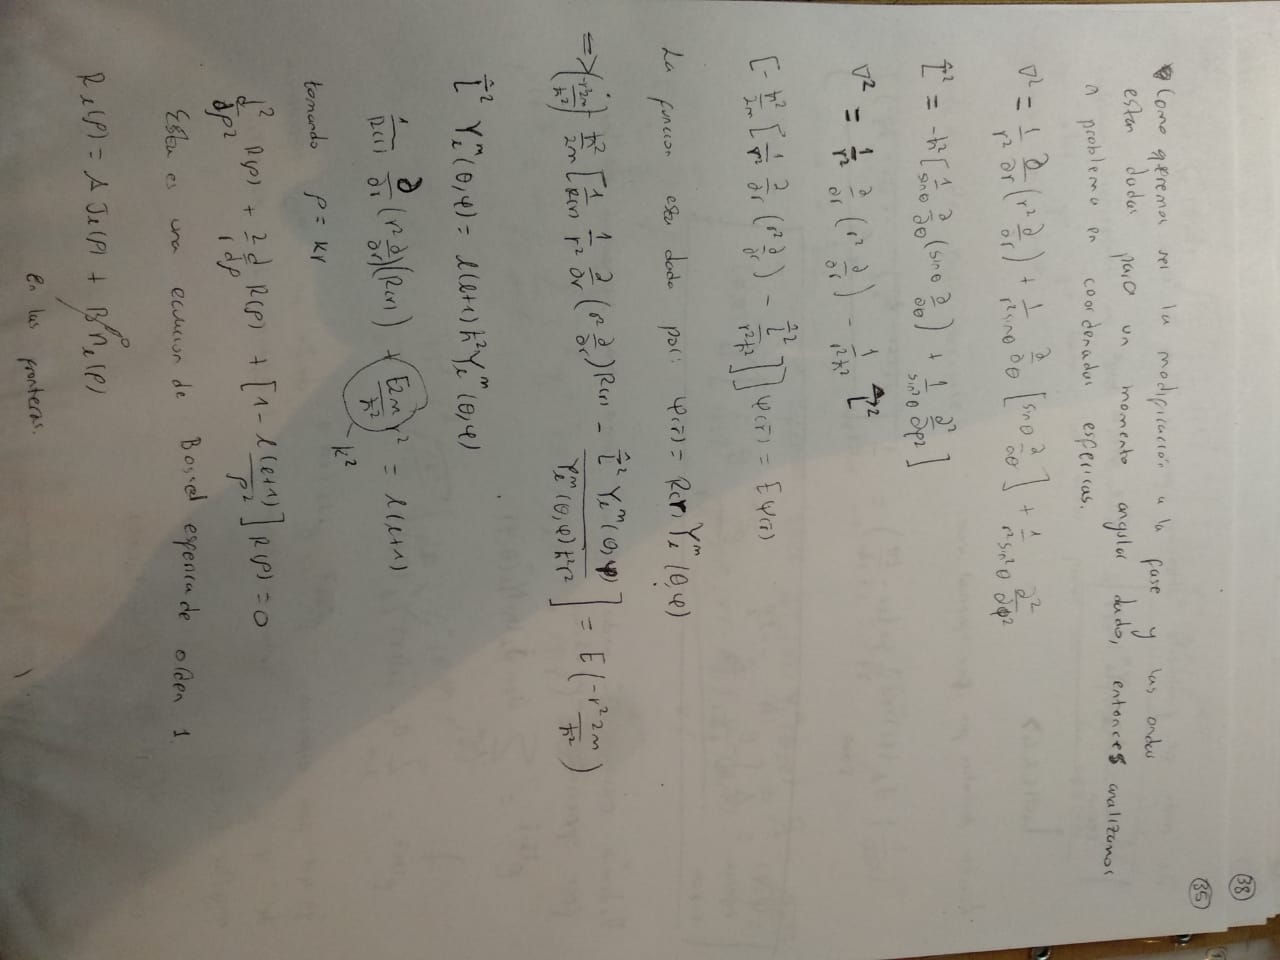 38
35
Como queremos ver la modificación a la fase y las ondas
estan dadas para un momento angular dado, entonces analizamos
n problema en coordenadas esfericas.
∇² = 1/r² ∂/∂r (r² ∂/∂r) + 1/(r² sinθ) ∂/∂θ [sinθ ∂/∂θ] + 1/(r² sin²θ) ∂²/∂φ²
L̂² = -ħ² [1/sinθ ∂/∂θ (sinθ ∂/∂θ) + 1/sin²θ ∂²/∂φ²]
∇² = 1/r² ∂/∂r (r² ∂/∂r) - 1/(r²ħ²) L̂²
[-ħ²/2m [1/r² ∂/∂r (r² ∂/∂r) - L̂²/(r²ħ²)]] ψ(r̄) = E ψ(r̄)
La funcion esta dada por: ψ(r̄) = R(r) Yₗᵐ(θ,φ)
=> (-r²2m/ħ²) · -ħ²/2m [1/R(r) 1/r² ∂/∂r (r² ∂/∂r) R(r) - L̂² Yₗᵐ(θ,φ)/(Yₗᵐ(θ,φ) ħ²r²)] = E (-r² 2m/ħ²)
L̂² Yₗᵐ(θ,φ) = l(l+1)ħ² Yₗᵐ(θ,φ)
1/R(r) ∂/∂r (r² ∂/∂r)(R(r)) + E2m/ħ² r² = l(l+1)
k²
tomando ρ = kr
d²/dρ² R(ρ) + 2/r d/dρ R(ρ) + [1 - l(l+1)/ρ²] R(ρ) = 0
Esta es una ecuacion de Bessel esferica de orden 1.
Rₗ(ρ) = A Jₗ(ρ) + B nₗ(ρ) 0
en las fronteras.